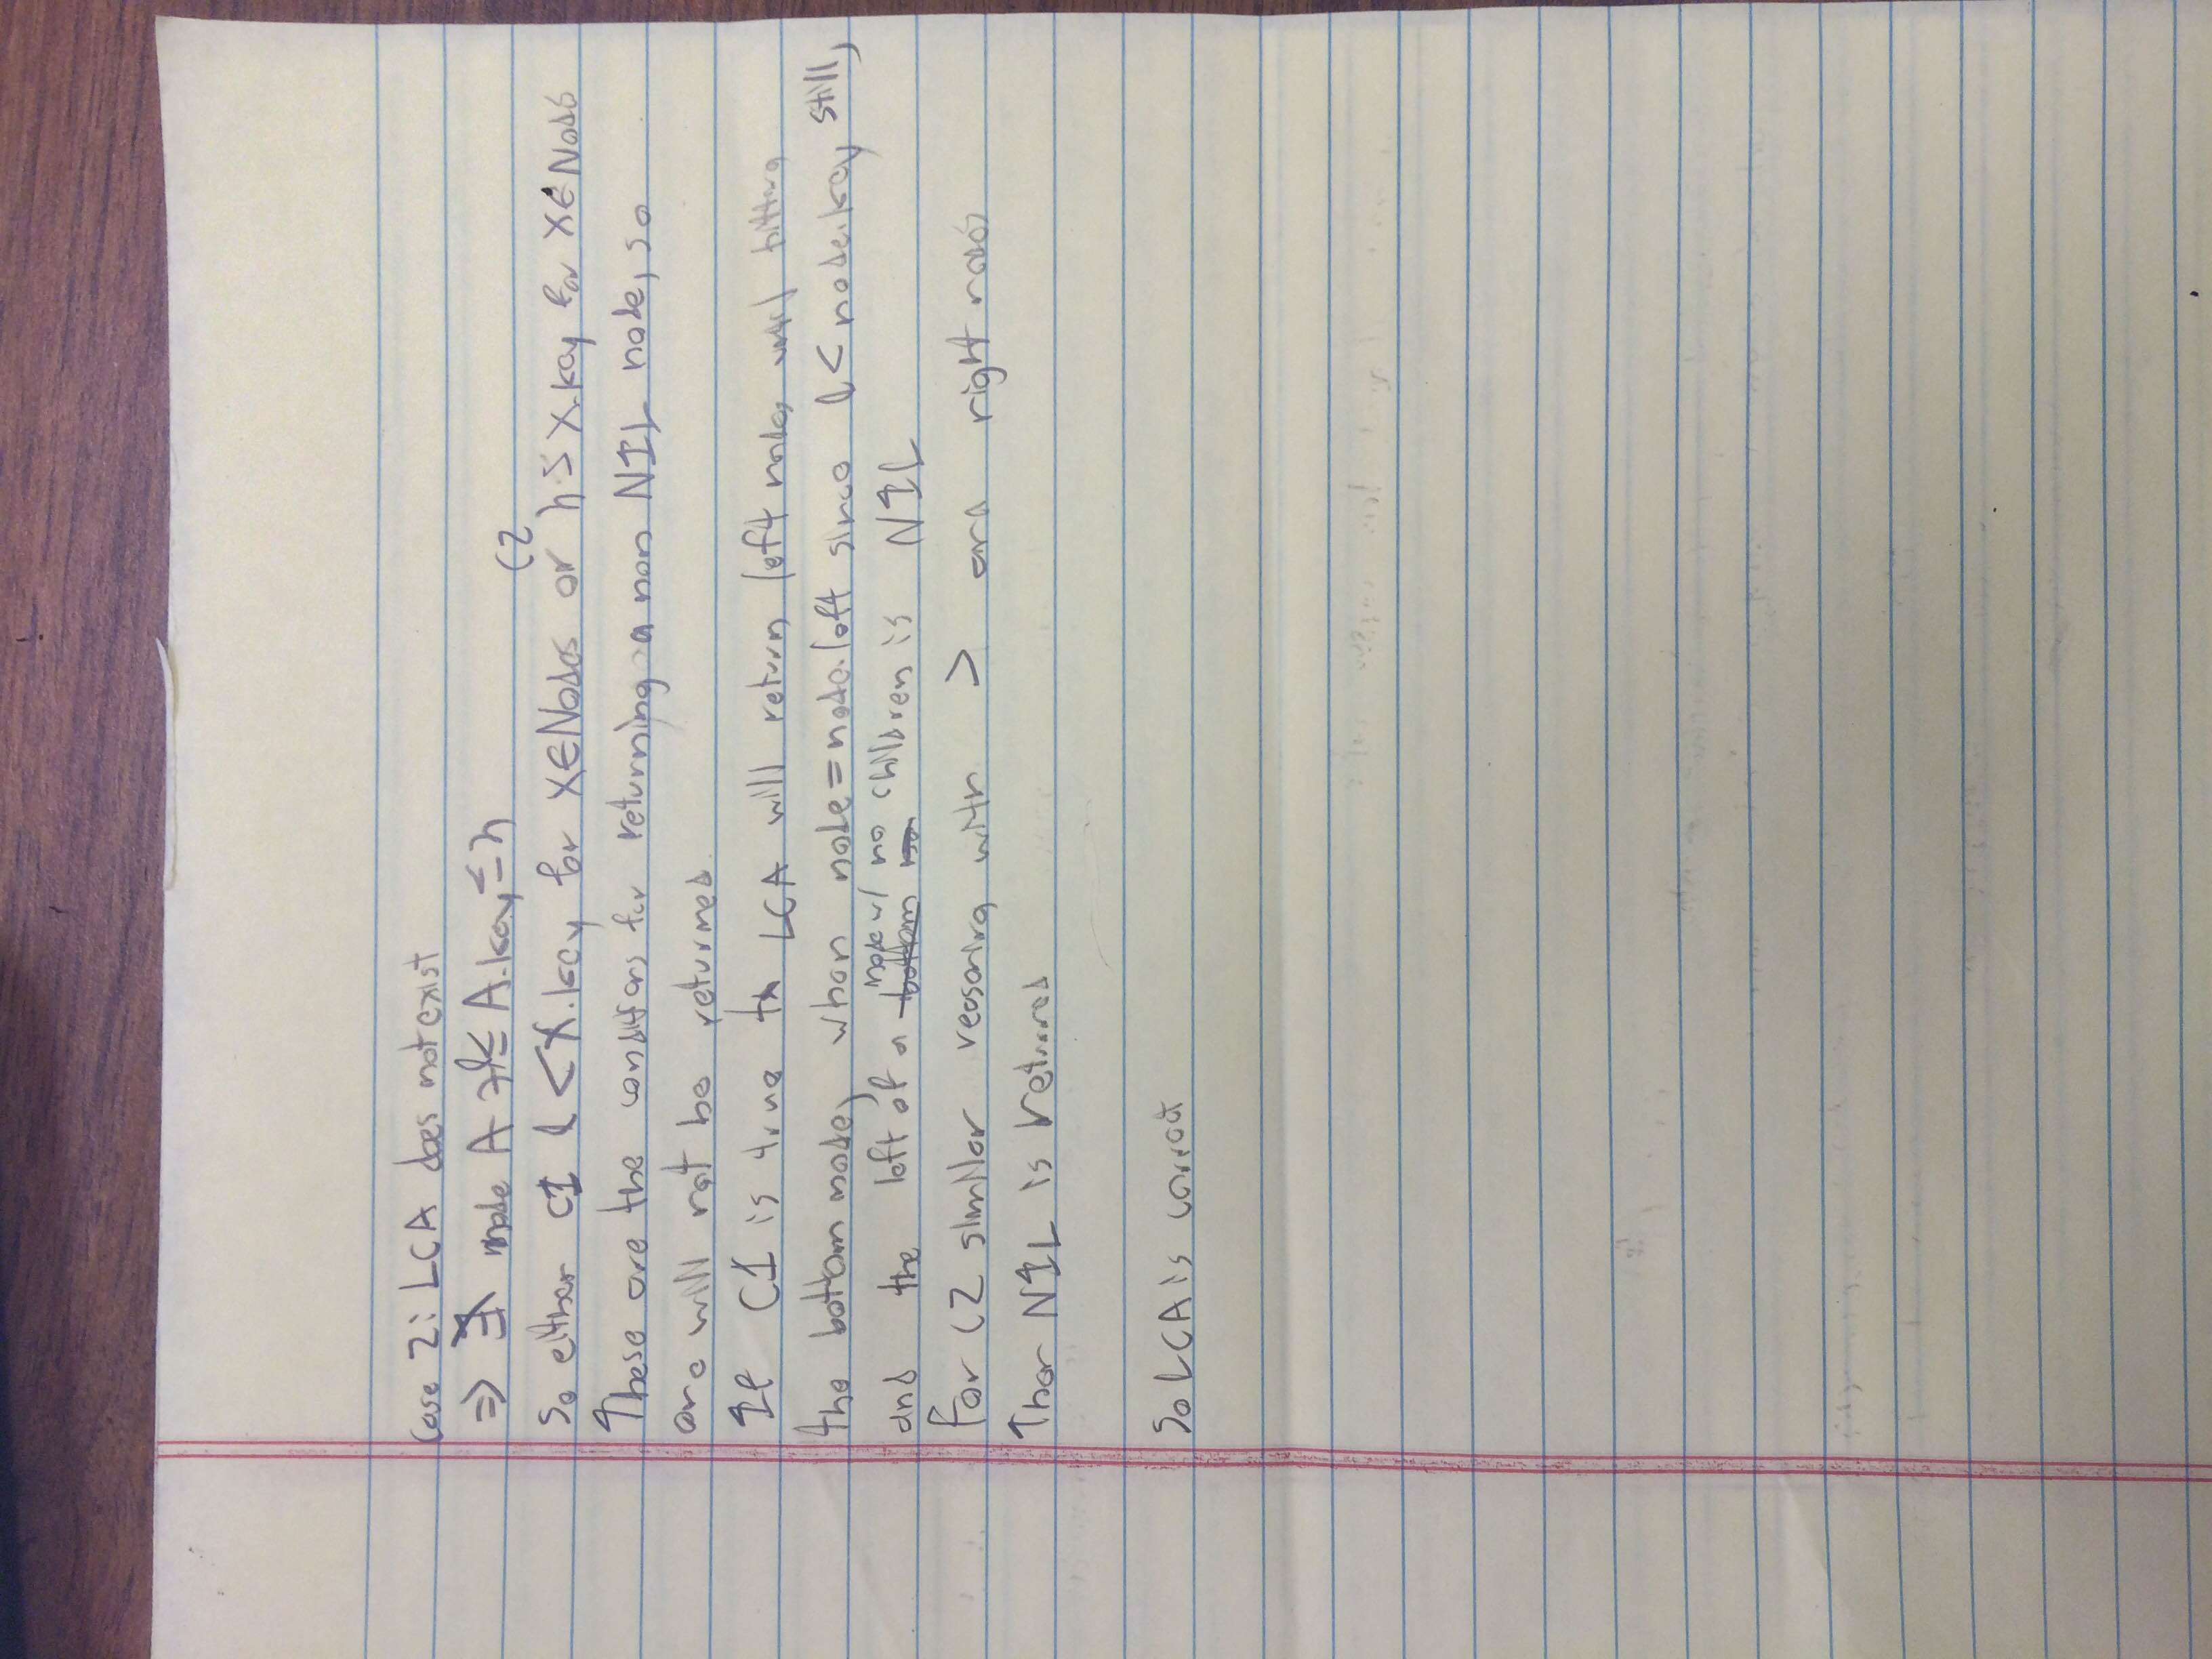 Case 2: LCA does not exist
⇒ ∄ node A ∋ l ≤ A.key ≤ h
So either C1 l < X.key for X∈Nodes or C2 h > X.key for X∈Nodes
These are the conditions for returning a non NIL node, so
one will not be returned.
If C1 is true LCA will return left nodes until hitting
the bottom node, when node = node.left since l < node.key still,
and the left of a node w/ no children is NIL
For C2 similar reasoning with > and right nodes
Then NIL is returned
So LCA is correct